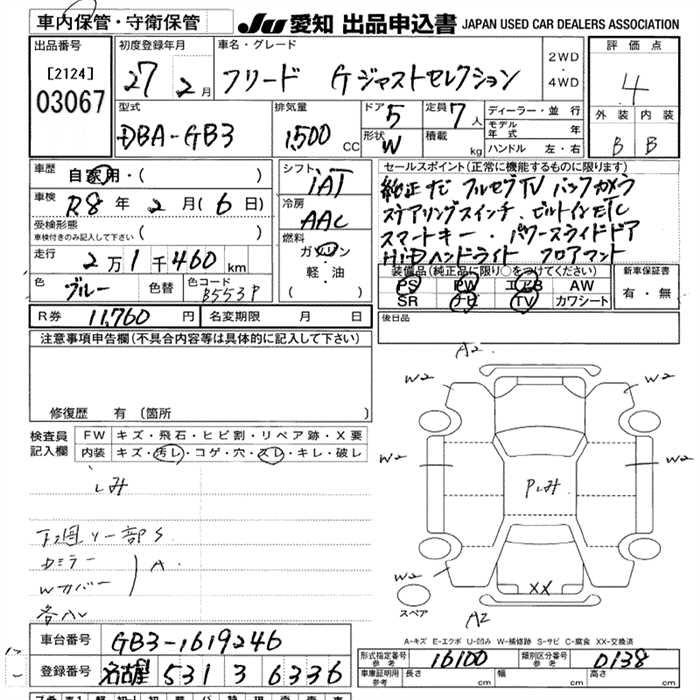 車内保管・守衛保管
JU 愛知 出品申込書 JAPAN USED CAR DEALERS ASSOCIATION
出品番号
[2124]
03067
初度登録年月
27 2月
車名・グレード
フリード Gジャストセレクション
2WD
・
4WD
評価点
4
外装 内装
B B
型式
DBA-GB3
排気量
1,500 CC
ドア 5
形状 W
定員 7人
積載 kg
ディーラー・並行
モデル年式 年
ハンドル 左・右
車歴 自家用・( )
車検 R8年 2月(6日)
受検形態
車検付きのみ記入して下さい ( )
走行 2万1千460km
色 ブルー 色替 色コード B553P
シフト
IAT
冷房
AAC
燃料
ガソリン
軽・油
( )
セールスポイント(正常に機能するものに限ります)
純正ナビ フルセグTV バックカメラ
ステアリングスイッチ、ビルトインETC
スマートキー・パワースライドドア
HiDヘッドライト フロアマット
装備品(純正品に限り○をつけてください)
PS PW エアB AW
SR ナビ TV カワシート
新車保証書
有・無
R券 11,760円 名変期限 月 日
後日品
注意事項申告欄(不具合内容等は具体的に記入して下さい)
修復歴 有(箇所
検査員記入欄
FW キズ・飛石・ヒビ割・リペア跡・X要
内装 キズ・汚レ・コゲ・穴・スレ・キレ・破レ
シミ
下廻り一部S
Dミラー
Wカバー
A
A2
W2 W2
W2 W2
Pしみ
W2
XX
スペア
A2
A-キズ E-エクボ U-凹み W-補修跡 S-サビ C-腐食 XX-交換済
車台番号 GB3-1619246
登録番号 名古屋 531 3 6336
形式指定番号 参考 16100
類別区分番号 参考 0138
車庫証明用 参考 長さ cm 幅 cm 高さ cm